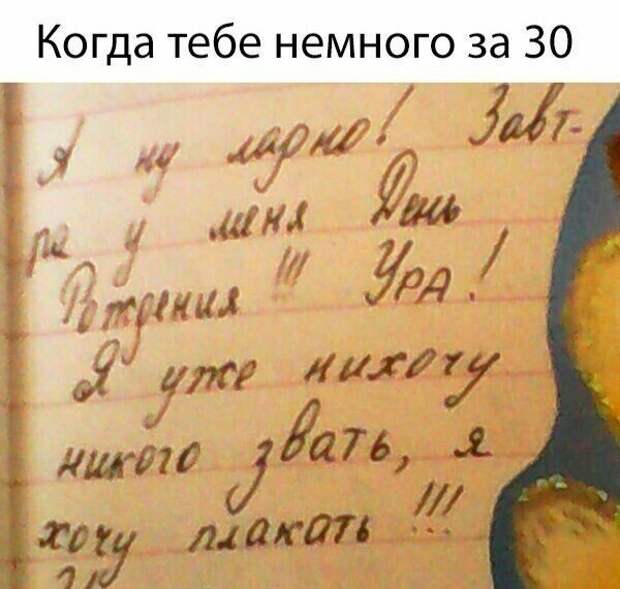 Когда тебе немного за 30
Я ну ладно! Завт-
ра у меня День
Рождения!!! УРА!
Я уже нихочу
никого звать, я
хочу плакать!!!